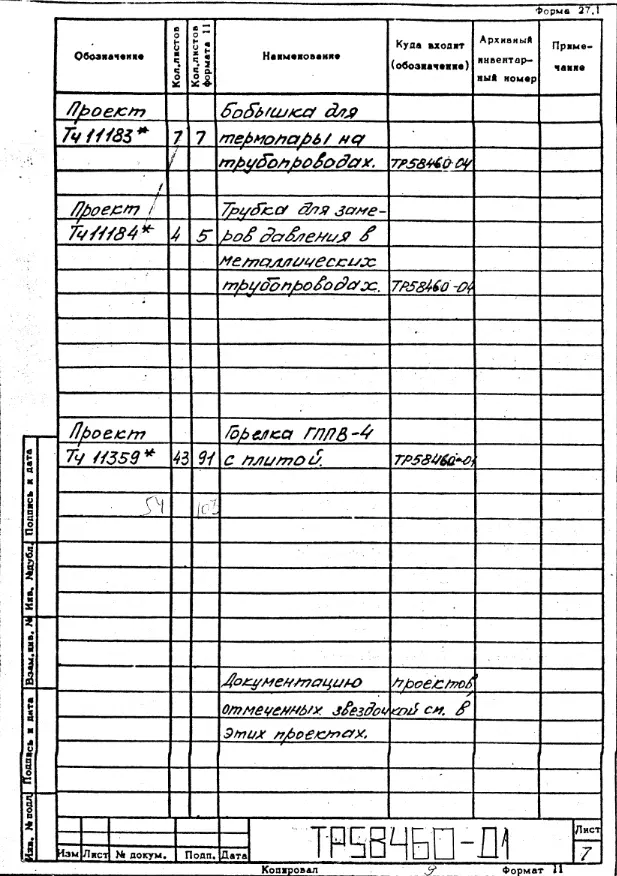 Форма 27.1
Обозначение Кол.листов Кол.листов формата 11 Наименование Куда входит (обозначение) Архивный инвентарный номер Примечание
Проект Бобышка для
Тч 11183* 7 7 термопары на
трубопроводах. ТР58460-04
Проект Трубка для заме-
Тч11184* 4 5 ров давления в
металлических
трубопроводах. ТР58460-04
Проект Горелка ГППВ-4
Тч 11359* 43 91 с плитой. ТР58460-01
54 103
Документацию проектов
отмеченных звездочкой см. в
этих проектах.
Инв. № подл Подпись и дата Взам.инв. № Инв. №дубл. Подпись и дата
ТР58460-01
Лист
7
Изм Лист № докум. Подп. Дата
Копировал 9 Формат 11